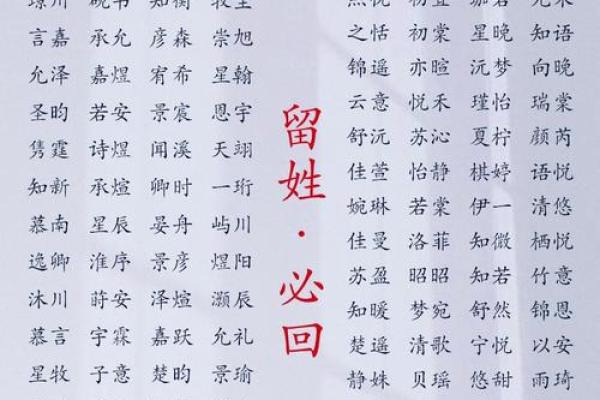 言嘉 承允 彦森 崇旭
允泽 嘉煜 宥希 星翰
圣昀 若安 景宸 恩宇
隽霆 诗煜 闻溪 天翊
知新 承煊 卿时 一珩
慕南 星辰 晏舟 屿川
逸卿 淮序 景彦 煜阳
沐川 莳安 泽煊 灏辰
慕言 宇霖 嘉跃 允礼
星牧 子意 楚昀 景瑜
留姓·必回
之恬 初棠 星晚 知语
锦遥 亦暄 沅梦 向晚
云意 悦禾 瑾怡 瑞棠
舒沅 苏沁 夏柠 颜芮
佳萱 怡静 棋婷 语悦
婉琳 若棠 伊一 清悠
佳曼 洛菲 知微 栖悦
苏盈 昭昭 知若 竹意
知暖 梦宛 舒然 锦恩
楚遥 清歌 宁悦 以安
静姝 贝瑶 悠甜 雨琦